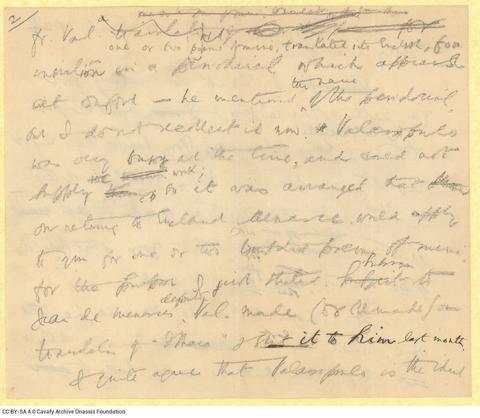 2
for Val. a
one or two poems of mine, translated into English, for
insertion in a periodical which appears
at Oxford — he mentioned the name of the periodical,
but I do not recollect it now. Valassopoulo
was very busy at the time, and could not
supply the work; so it was arranged that
on returning to England Menasce would apply
to you for one or two translated poems of mine
for the purpose I just stated.
Jean de Menasce's departure Val. made (or remade) a
translation of "Ithaca" & sent it to him last month.
I quite agree that Valassopoulo is the ideal
CC BY-SA 4.0 Cavafy Archive Onassis Foundation